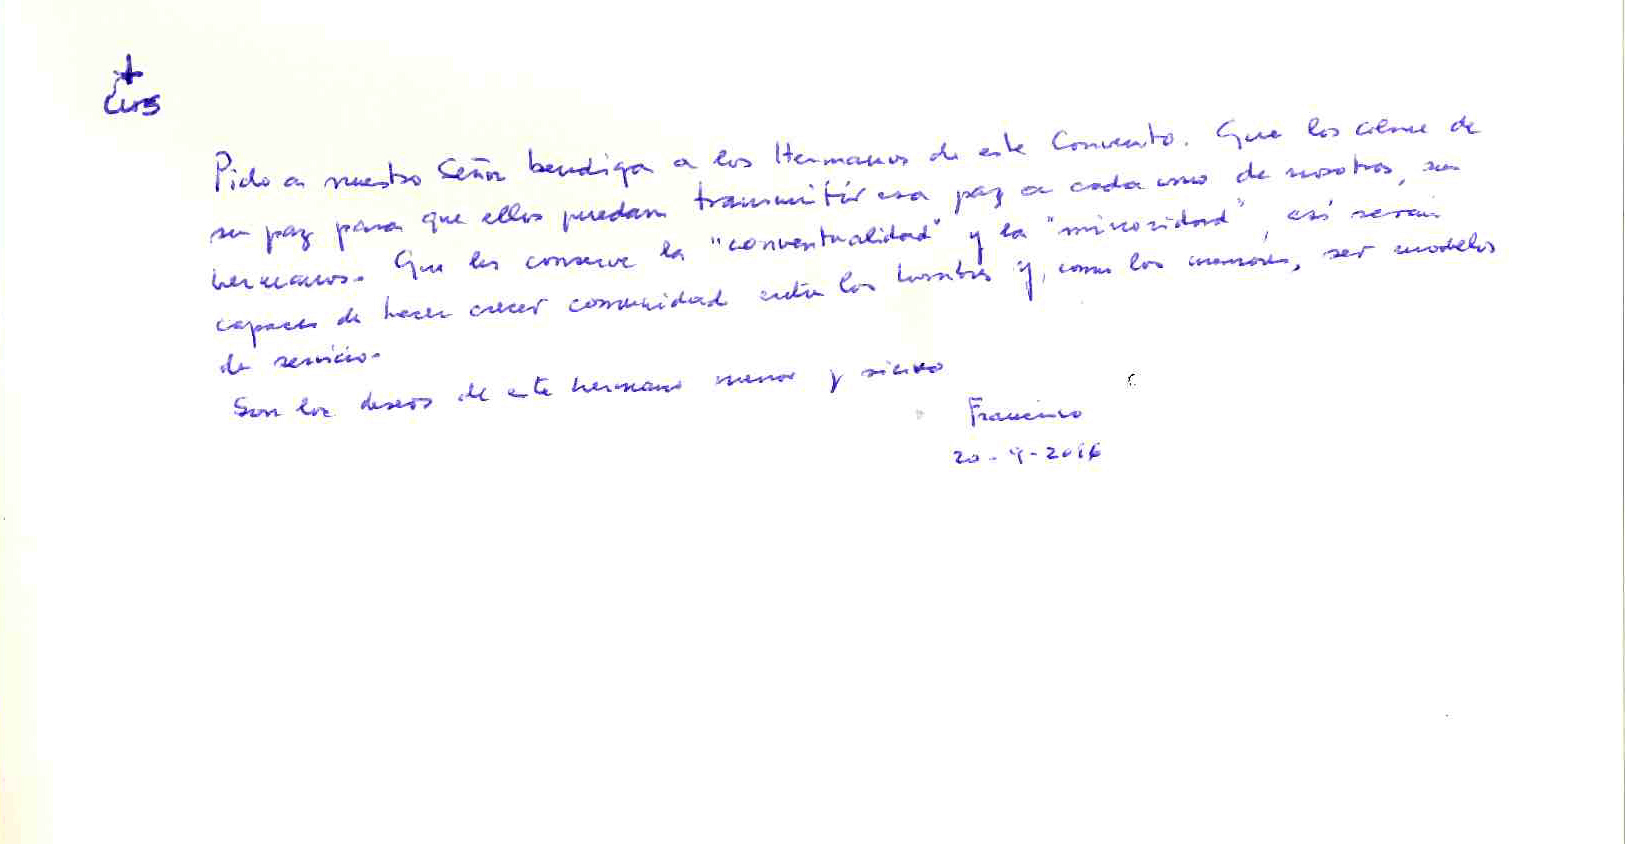 +
Pido a nuestro Señor bendiga a los Hermanos de este Convento. Que los colme de
su paz para que ellos puedan transmitir esa paz a cada uno de nosotros, sus
hermanos. Que les conserve la "conventualidad" y la "minoridad", así serán
capaces de hacer crecer comunidad entre los hombres y, como los menores, ser modelos
de servicio.
Son los deseos de este hermano menor y siervo
Francisco
20-9-2016